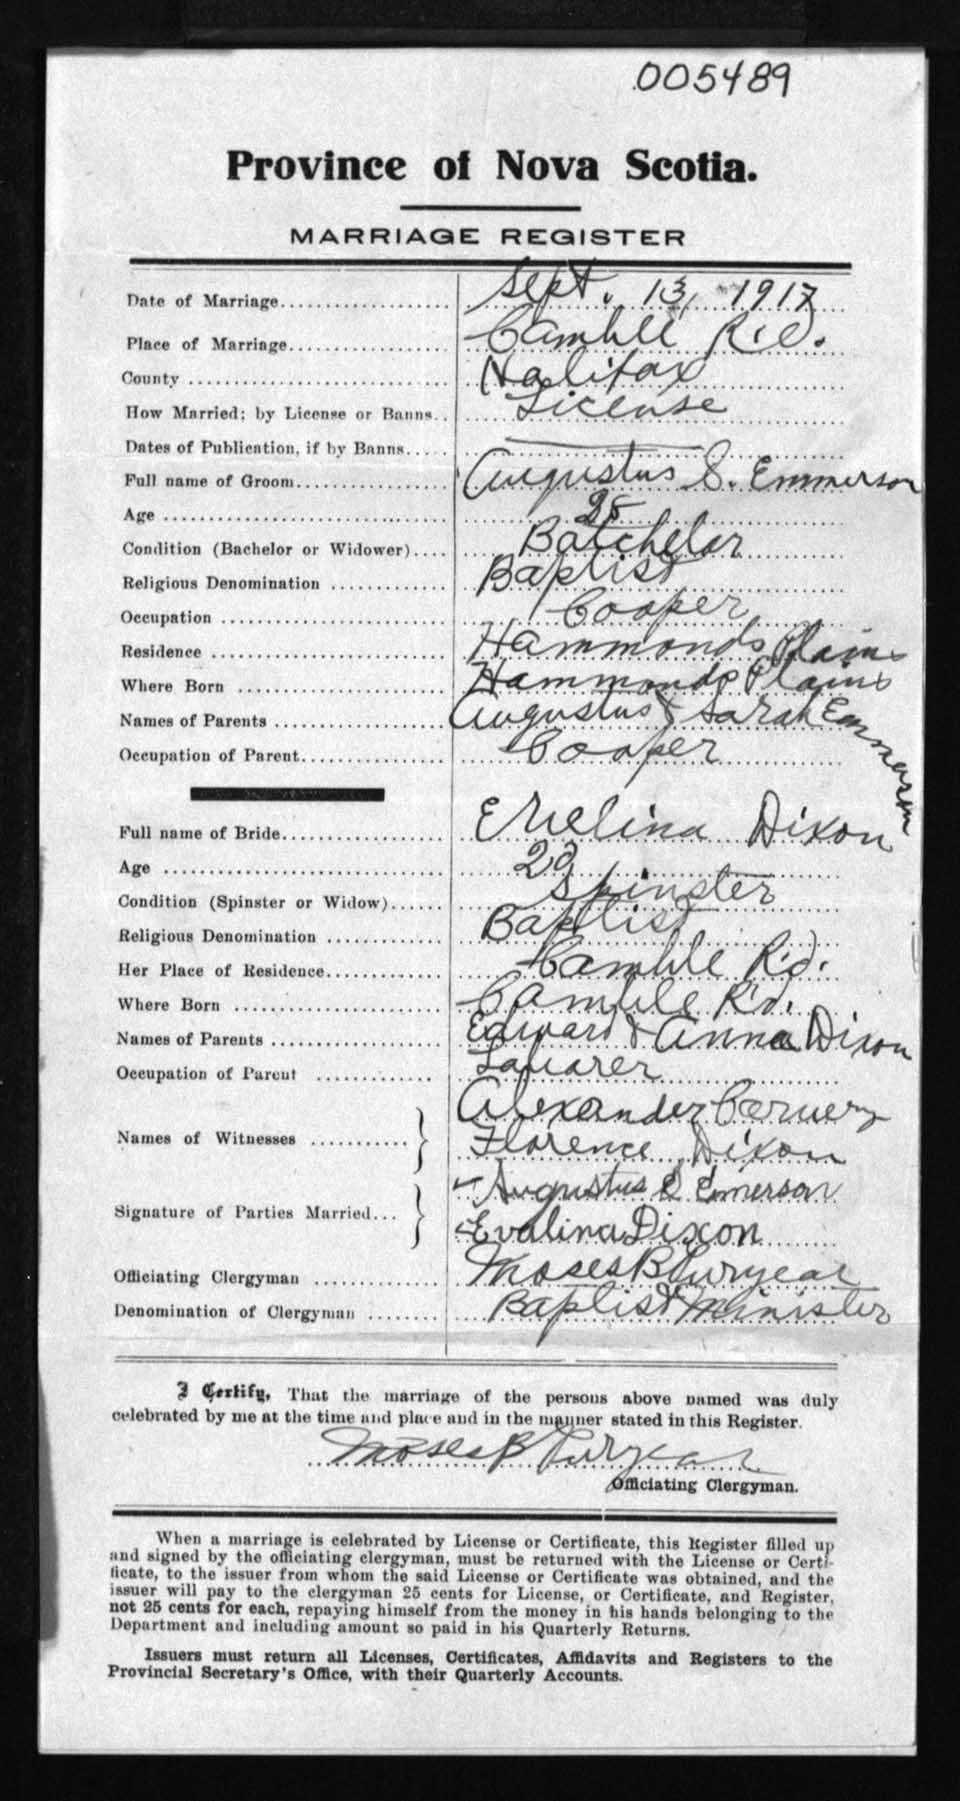 005489
Province of Nova Scotia.
MARRIAGE REGISTER
Date of Marriage Sept. 13, 1917
Place of Marriage Camhle R'd.
County Halifax
How Married; by License or Banns License
Dates of Publication, if by Banns
Full name of Groom Augustus S. Emmerson
Age 25
Condition (Bachelor or Widower) Batchelor
Religious Denomination Baptist
Occupation Cooper
Residence Hammonds Plains
Where Born Hammonds Plains
Names of Parents Augustus & Sarah Emmerson
Occupation of Parent Cooper
Full name of Bride Evelina Dixon
Age 22
Condition (Spinster or Widow) Spinster
Religious Denomination Baptist
Her Place of Residence Camhle R'd.
Where Born Camhle R'd.
Names of Parents Edward & Anna Dixon
Occupation of Parent Labarer
Names of Witnesses Alexander Carvery
Florence Dixon
Signature of Parties Married Augustus S Emerson
Evalina Dixon
Officiating Clergyman Moses B Puryear
Denomination of Clergyman Baptist Minister
I Certify, That the marriage of the persons above named was duly
celebrated by me at the time and place and in the manner stated in this Register.
Moses B Puryear
Officiating Clergyman.
When a marriage is celebrated by License or Certificate, this Register filled up
and signed by the officiating clergyman, must be returned with the License or Certi-
ficate, to the issuer from whom the said License or Certificate was obtained, and the
issuer will pay to the clergyman 25 cents for License, or Certificate, and Register,
not 25 cents for each, repaying himself from the money in his hands belonging to the
Department and including amount so paid in his Quarterly Returns.
Issuers must return all Licenses, Certificates, Affidavits and Registers to the
Provincial Secretary's Office, with their Quarterly Accounts.